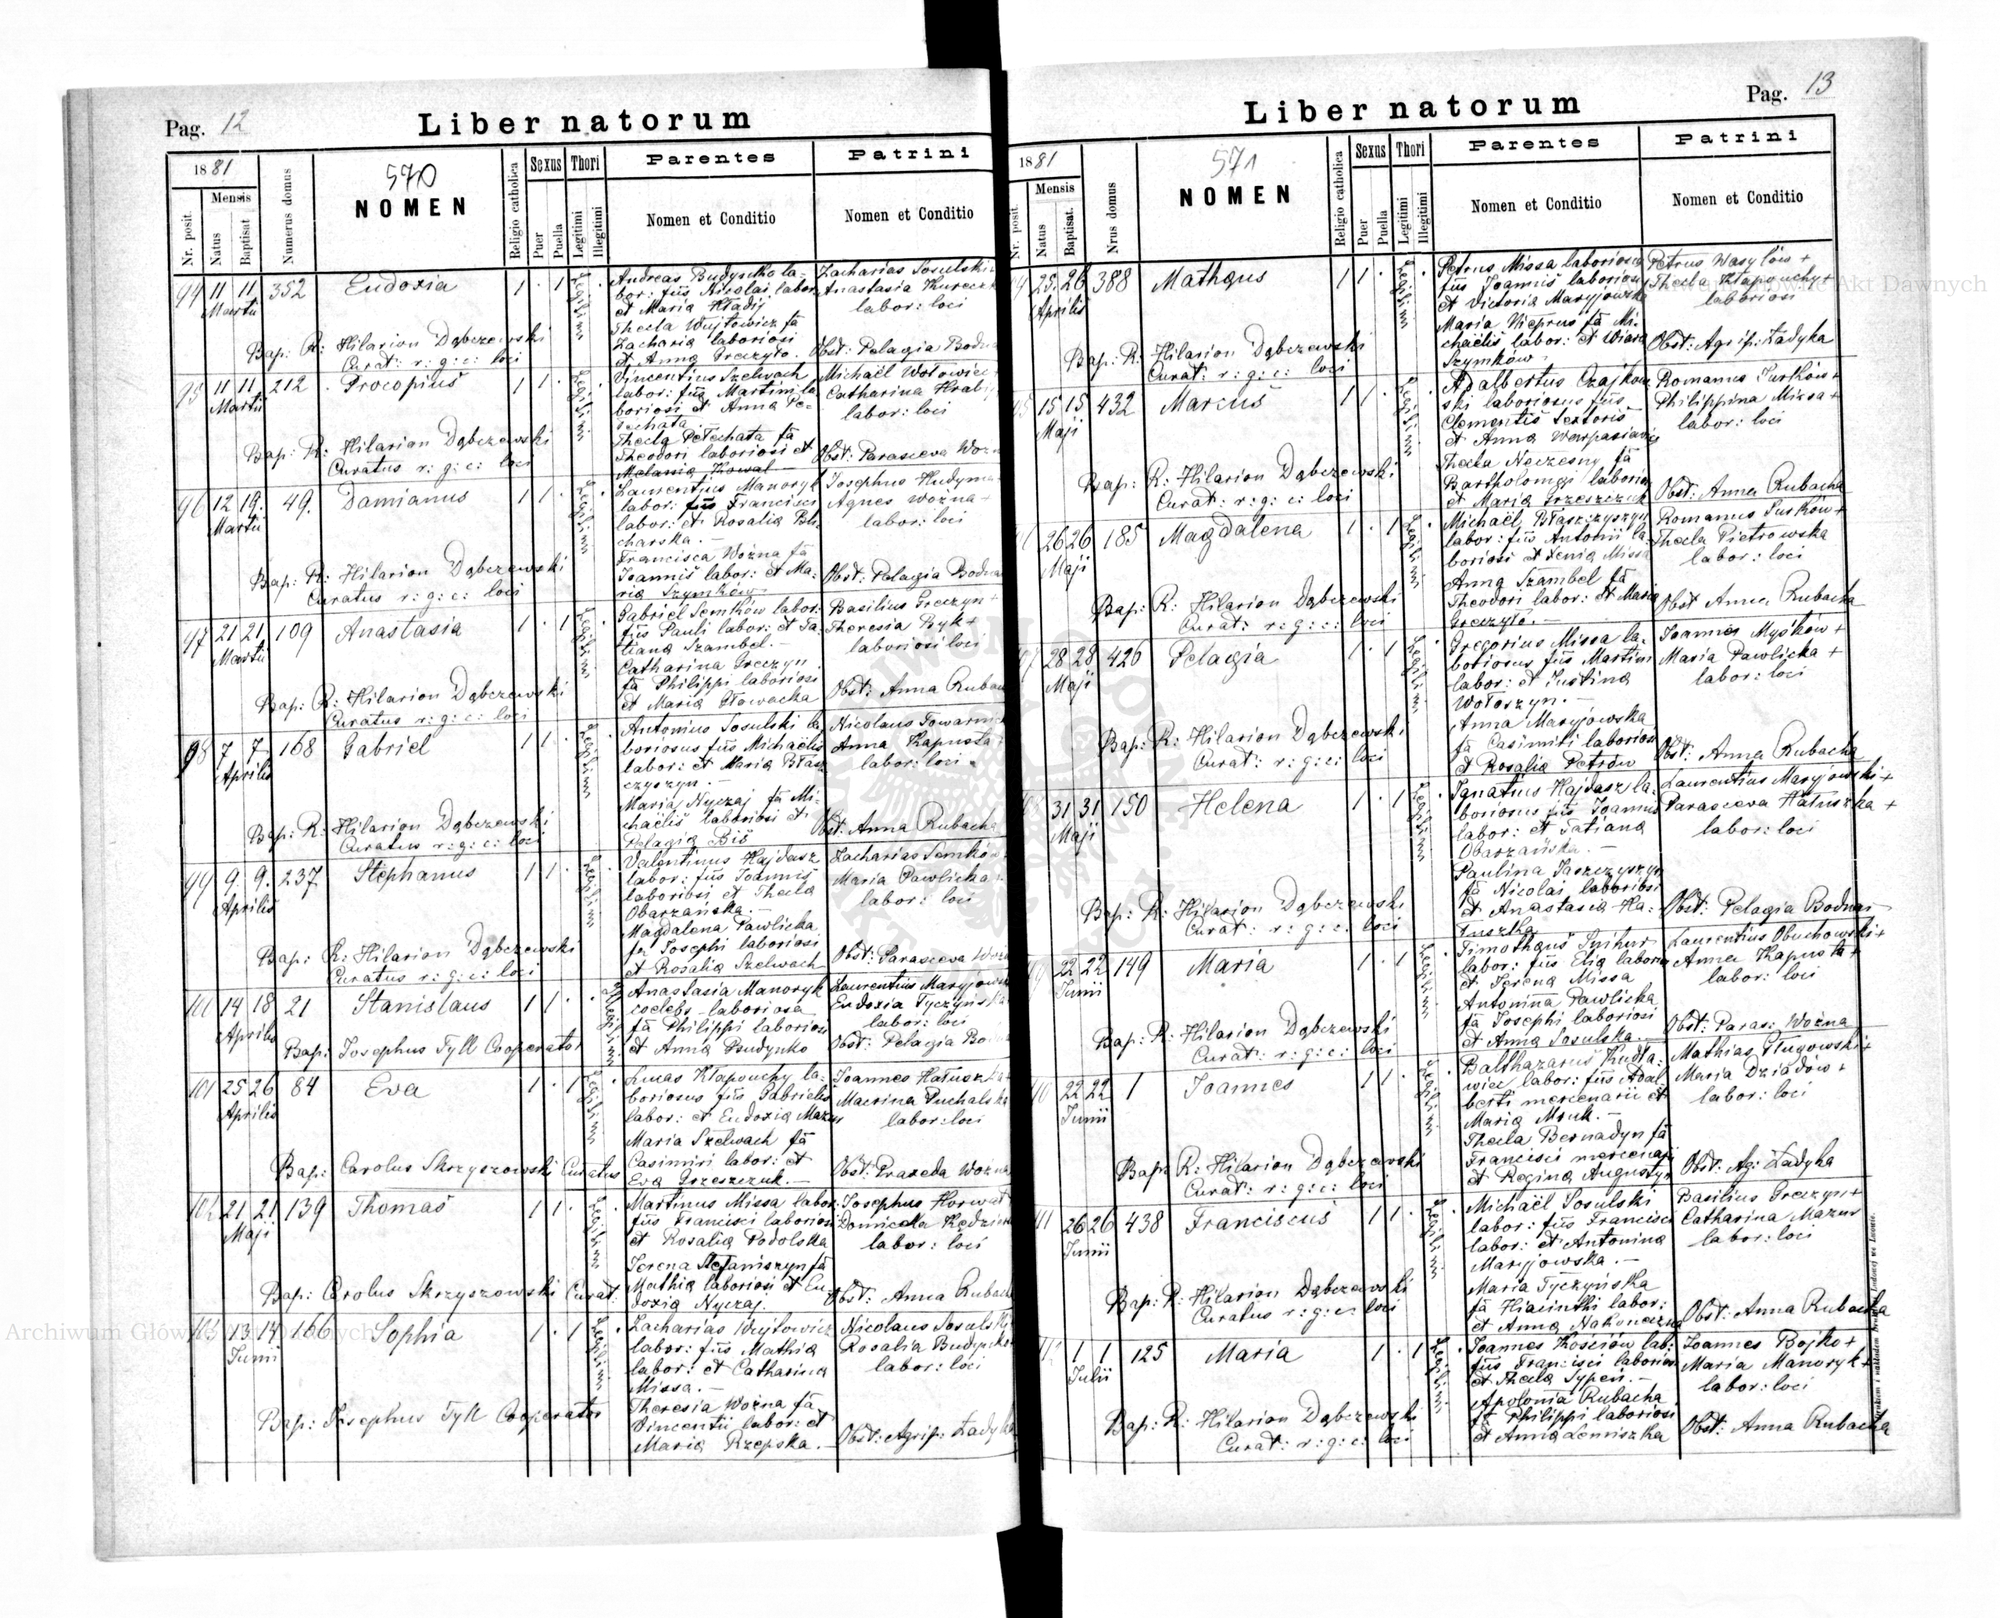 Pag. 12
Liber natorum
1881
Nr. posit.
Mensis
Natus
Baptisat
Numerus domus
570
NOMEN
Religio catholica
Sexus
Puer
Puella
Thori
Legitimi
Illegitimi
Parentes
Nomen et Conditio
Patrini
Nomen et Conditio
94 11 11 352 Eudoxia 1 . 1 Legitimi
Martii
Andreas Budynko la-
bor: fiis Nicolai labor
et Maria Hładij
Thecla Wujtowicz fa
Zacharia laboriosi
et Anna Greczyło.
Zacharias Sosulski
Anastasia Kureczk
labor: loci
Obst: Pelagia Bodna
Bap: R: Hilarion Dąbczewski
Curat: r: g: c: loci
95 11 11 212 Procopius 1 1 . Legitimi
Martii
Vincentius Szelwach
labor: fiis Martini la-
boriosi et Anna Pe-
techata.
Thecla Petechata fa
Theodori laboriosi et
Melania Kowal
Michaël Wołowiec
Catharina Hrab
labor: loci
Obst: Parasceva Wozn
Bap: R: Hilarion Dąbczewski
Curatus r: g: c: loci
96 12 19. 49. Damianus 1 1 . Legitimi
Martii
Laurentius Manoryk
labor: fiis Francisci
labor: et Rosalia Bli
charska. -
Francisca Woźna fa
Joannis labor: et Ma-
ria Szymków
Josephus Hudyma
Agnes Woźna
labor: loci
Obst: Pelagia Bodna
Bap: R: Hilarion Dąbczewski
Curatus r: g: c: loci
97 21 21 109 Anastasia 1 . 1 Legitimi
Martii
Gabriel Semków labor:
fiis Pauli labor: et Ta-
tiana Szambel. -
Catharina Greczyn
fa Philippi laboriosi
et Maria Głowacka
Basilius Greczyn +
Theresia Byk +
laboriosi loci
Obst: Anna Ruba
Bap: R: Hilarion Dąbczewski
Curatus r: g: c: loci
98 7 7 168 Gabriel 1 1 . Legitimi
Aprilis
Antonius Sosulski la
boriosus fiis Michaëlis
labor: et Maria Błasz
czyszyn. -
Maria Nyczaj fa Mi-
chaëlis laboriosi et
Pelagia Bić
Nicolaus Towarnick
Anna Kapusta
labor: loci
Obst: Anna Rubacha
Bap: R: Hilarion Dąbczewski
Curatus r: g: c: loci
99 9. 9. 237 Stephanus 1 1 . Legitimi
Aprilis
Valentinus Hajdasz
labor: fiis Joannis
laboriosi et Thecla
Obarzańska. -
Magdalena Pawlicka
fa Josephi laboriosi
et Rosalia Szelwach
Zacharias Semków
Maria Pawlicka
labor: loci
Obst: Parasceva Woźn
Bap: R: Hilarion Dąbczewski
Curatus r: g: c: loci
101 14 18 21 Stanislaus 1 1 .
Aprilis
Anastasia Manoryk
coelebs laboriosa
fa Philippi laboriosi
et Anna Budynko
Laurentius Maryjows
Eudoxia Tyczyńska
labor: loci
Obst: Pelagia Bo
Bap: Josephus Tyll Cooperator
101 25 26 84 Eva 1 . 1 Legitimi
Aprilis
Lucas Kłapouchy la-
boriosus fiis Gabrielis
labor: et Eudoxia Mazur
Maria Szelwach fa
Casimiri labor: et
Eva Grzeszczuk. -
Joannes Hatuszka
Macrina Puchalska
labor: loci
Obst: Praxeda Woźna
Bap: Carolus Skrzyszowski Curatus
102 21 21 139 Thomas 1 1 . Legitimi
Maji
Martinus Missa labor
fiis Francisci laboriosi
et Rosalia Podolska
Terena Stefaniszyn fa
Mathia laboriosi et Eu-
doxia Nyczaj.
Josephus Horwat
Dominicella Kędzier
labor: loci
Obst: Anna Rubach
Bap: Carolus Skrzyszowski Curat:
103 13 14 166 Sophia 1 . 1 Legitimi
Junii
Zacharias Wujtowicz
labor: fiis Mathia
labor: et Catharina
Missa. -
Theresia Woźna fa
Vincentii labor: et
Maria Rzepska. -
Nicolaus Sosulski
Rosalia Budynko
labor: loci
Obst: Agrip: Ładyka
Bap: Josephus Tyll Cooperator
Pag. 13
Liber natorum
1881
Nr. posit.
Mensis
Natus
Baptisat.
Nrus domus
571
NOMEN
Religio catholica
Sexus
Puer
Puella
Thori
Legitimi
Illegitimi
Parentes
Nomen et Conditio
Patrini
Nomen et Conditio
25. 26 388 Mathæus 1 1 . Legitimi
Aprilis
Petrus Missa laboriosus
fiis Joannis laboriosi
et Victoria Maryjowska
Maria Nieprus fa Mi-
chaëlis labor: et Wiera
Szymków
Petrus Wasylów +
Thecla Kłapouchy +
laboriosi
Obst: Agrip: Ładyka
Bap: R: Hilarion Dąbczewski
Curat: r: g: c: loci
15 15 432 Marcus 1 1 . Legitimi
Maji
Adalbertus Czajkow
ski laboriosus fiis
Clementis Sextoris
et Anna Warpasiewicz
Thecla Niezesny fa
Bartholomæi laborios
et Maria Grzeszczuk
Romanus Jurków +
Philippina Missa +
labor: loci
Obst: Anna Rubacha
Bap: R: Hilarion Dąbczewski
Curat: r: g: c: loci
26 26 185 Magdalena 1 . 1 Legitimi
Maji
Michaël Błaszczyszyn
labor: fiis Antonii la-
boriosi et Xenia Missa
Anna Szambel fa
Theodori labor: et Maria
Greczyło. -
Romanus Jurków +
Thecla Pietrowska
labor: loci
Obst Anna Rubacha
Bap: R: Hilarion Dąbczewski
Curat: r: g: c: loci
28 28 426 Pelagia 1 . 1 Legitimi
Maji
Gregorius Missa la-
boriosus fiis Martini
labor: et Justina
Wołoszyn. -
Anna Maryjowska
fa Casimiri laboriosi
et Rosalia Petrów
Joannes Myśków +
Maria Pawlicka +
labor: loci
Obst: Anna Rubacha
Bap: R: Hilarion Dąbczewski
Curat: r: g: c: loci
31 31 150 Helena 1 . 1 Legitimi
Maji
Ignatius Hajdasz la-
boriosus fiis Joannis
labor: et Tatiana
Obarzańska. -
Paulina Jaszczyszyn
fa Nicolai laboriosi
et Anastasia Ha-
tuszka
Laurentius Maryjowski +
Parasceva Hatuszka +
labor: loci
Obst: Pelagia Bodnar
Bap: R: Hilarion Dąbczewski
Curat: r: g: c: loci
22 22 149 Maria 1 . 1 Legitimi
Junii
Timotheus Snihur
labor: fiis Elia labor
et Terena Missa
Antonina Pawlicka
fa Josephi laboriosi
et Anna Sosulska. -
Laurentius Obuchowski +
Anna Kapusta +
labor: loci
Obst: Paras: Woźna
Bap: R: Hilarion Dąbczewski
Curat: r: g: c: loci
22 22 1 Joannes 1 1 . Legitimi
Junii
Balthazarus Kudła-
wiec labor: fiis Adal-
berti mercenarii et
Maria Mruk. -
Thecla Bernadyn fa
Francisci mercenarii
et Regina Augustyn
Mathias Długowski +
Maria Dziadów +
labor: loci
Obst: Ag: Ładyka
Bap: R: Hilarion Dąbczewski
Curat: r: g: c: loci
26 26 438 Franciscus 1 1 . Legitimi
Junii
Michaël Sosulski
labor: fiis Francisci
labor: et Antonina
Maryjowska. -
Maria Tyczyńska
fa Hiacinthi labor:
et Anna Nakoneczna
Basilius Greczyn +
Catharina Mazur
labor: loci
Obst: Anna Rubacha
Bap: R: Hilarion Dąbczewski
Curatus r: g: c: loci
1 1 125 Maria 1 . 1 Legitimi
Julii
Joannes Kościów lab:
fiis Francisci laborios
et Thecla Sypeń. -
Apolonia Rubacha
fa Philippi laboriosi
et Anna Leniszka
Joannes Bojko +
Maria Manoryk +
labor: loci
Obst: Anna Rubacha
Bap: R: Hilarion Dąbczewski
Curat: r: g: c: loci
Archiwum Główne Akt Dawnych
Archiwum Główne Akt Dawnych